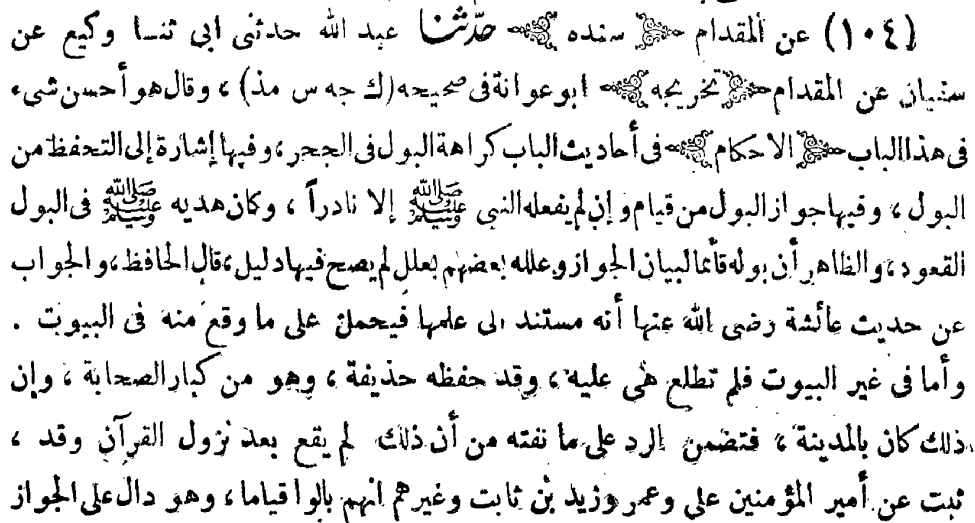 (١٠٤) عن المقدام ﴿سنده﴾ حدّثنا عبد الله حدثنى ابى ثنا وكيع عن
سفيان عن المقدام ﴿تخريجه﴾ ابو عوانة فى صحيحه (ك جه س مذ) ، وقال هو أحسن شىء
فى هذا الباب ﴿الاحكام﴾ فى أحاديث الباب كراهة البول فى الجحر، وفيها إشارة إلى التحفظ من
البول ، وفيها جواز البول من قيام وإن لم يفعله النبى ﷺ إلا نادراً ، وكان هديه ﷺ فى البول
القعود ، والظاهر أن بوله قائما لبيان الجواز وعلله بعضهم بعلل لم يصح فيها دليل ، قال الحافظ ، والجواب
عن حديث عائشة رضى الله عنها أنه مستند الى علمها فيحمل على ما وقع منه فى البيوت .
وأما فى غير البيوت فلم تطلع هى عليه ، وقد حفظه حذيفة ، وهو من كبار الصحابة ، وإن
ذلك كان بالمدينة ، فتضمن الرد على ما نفته من أن ذلك لم يقع بعد نزول القرآن وقد ،
ثبت عن أمير المؤمنين على وعمر وزيد بن ثابت وغيرهم انهم بالوا قياما ، وهو دال على الجواز